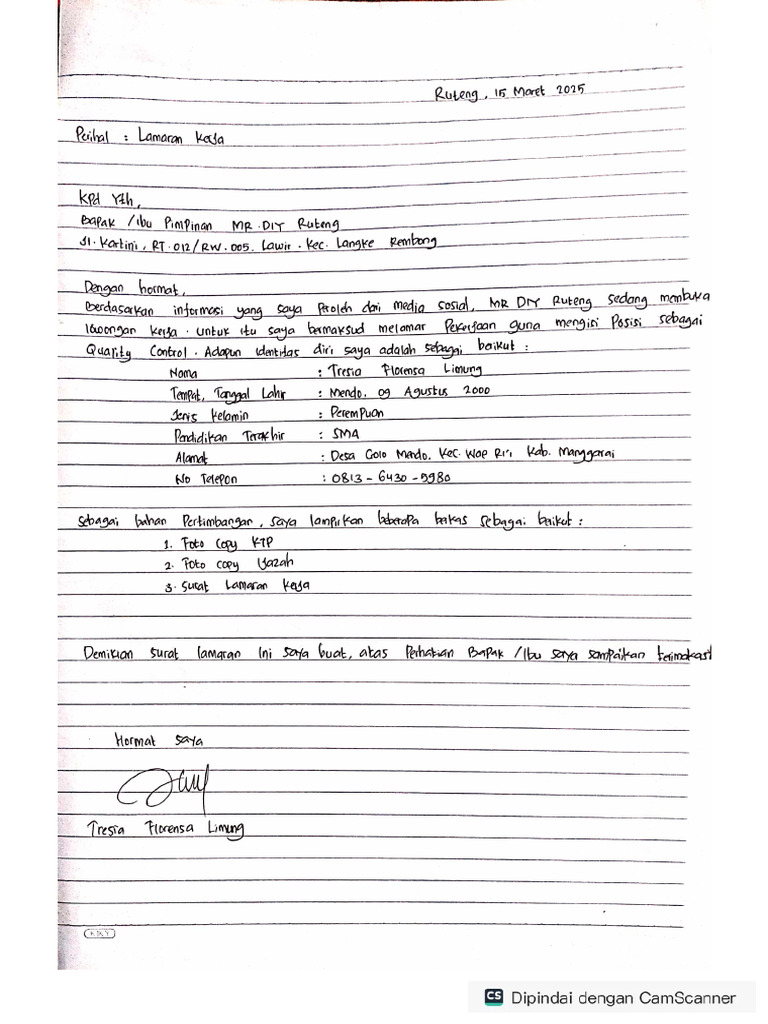 Ruteng, 15 Maret 2025
Perihal : Lamaran Kerja
Kpd Yth,
Bapak / Ibu Pimpinan MR. DIY Ruteng
Jl. Kartini, RT. 012/RW. 005. Lawir. Kec. Langke Rembong
Dengan hormat,
Berdasarkan informasi yang saya Peroleh dari media sosial, MR DIY Ruteng sedang membuka
lowongan kerja. Untuk itu saya bermaksud melamar Pekerjaan guna mengisi Posisi sebagai
Quality Control. Adapun Identitas diri saya adalah sebagai berikut :
Nama : Tresia Florensa Limung
Tempat, Tanggal Lahir : Mendo, 09 Agustus 2000
Jenis Kelamin : Perempuan
Pendidikan Terakhir : SMA
Alamat : Desa Golo Mendo, Kec. Wae Ri'i Kab. Manggarai
No Telepon : 0813-6430-5980
Sebagai bahan Pertimbangan, saya lampirkan beberapa berkas sebagai berikut :
1. Foto copy KTP
2. Foto copy Ijazah
3. Surat Lamaran Kerja
Demikian surat lamaran Ini saya buat, atas Perhatian Bapak /Ibu saya sampaikan terimakasi
Hormat saya
Tresia Florensa Limung
KKY
CS Dipindai dengan CamScanner